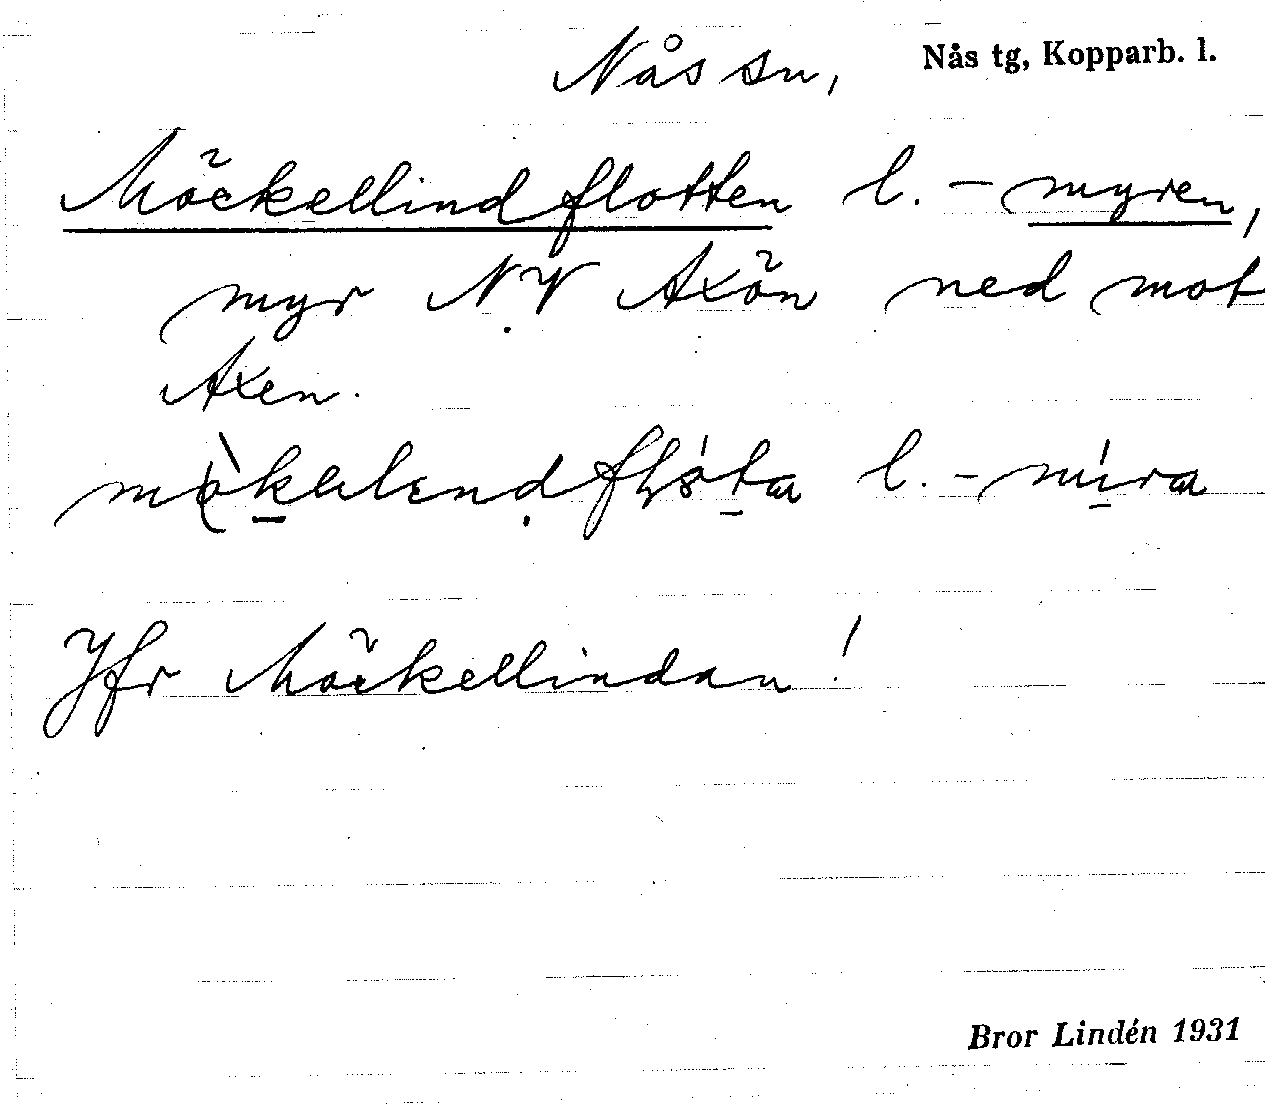 Nås sn, Nås tg, Kopparb. l.
Möckellindflotten l. -myren,
myr NV Axön ned mot
Axen.
l. -
Jfr Möckellindan!
Bror Lindén 1931